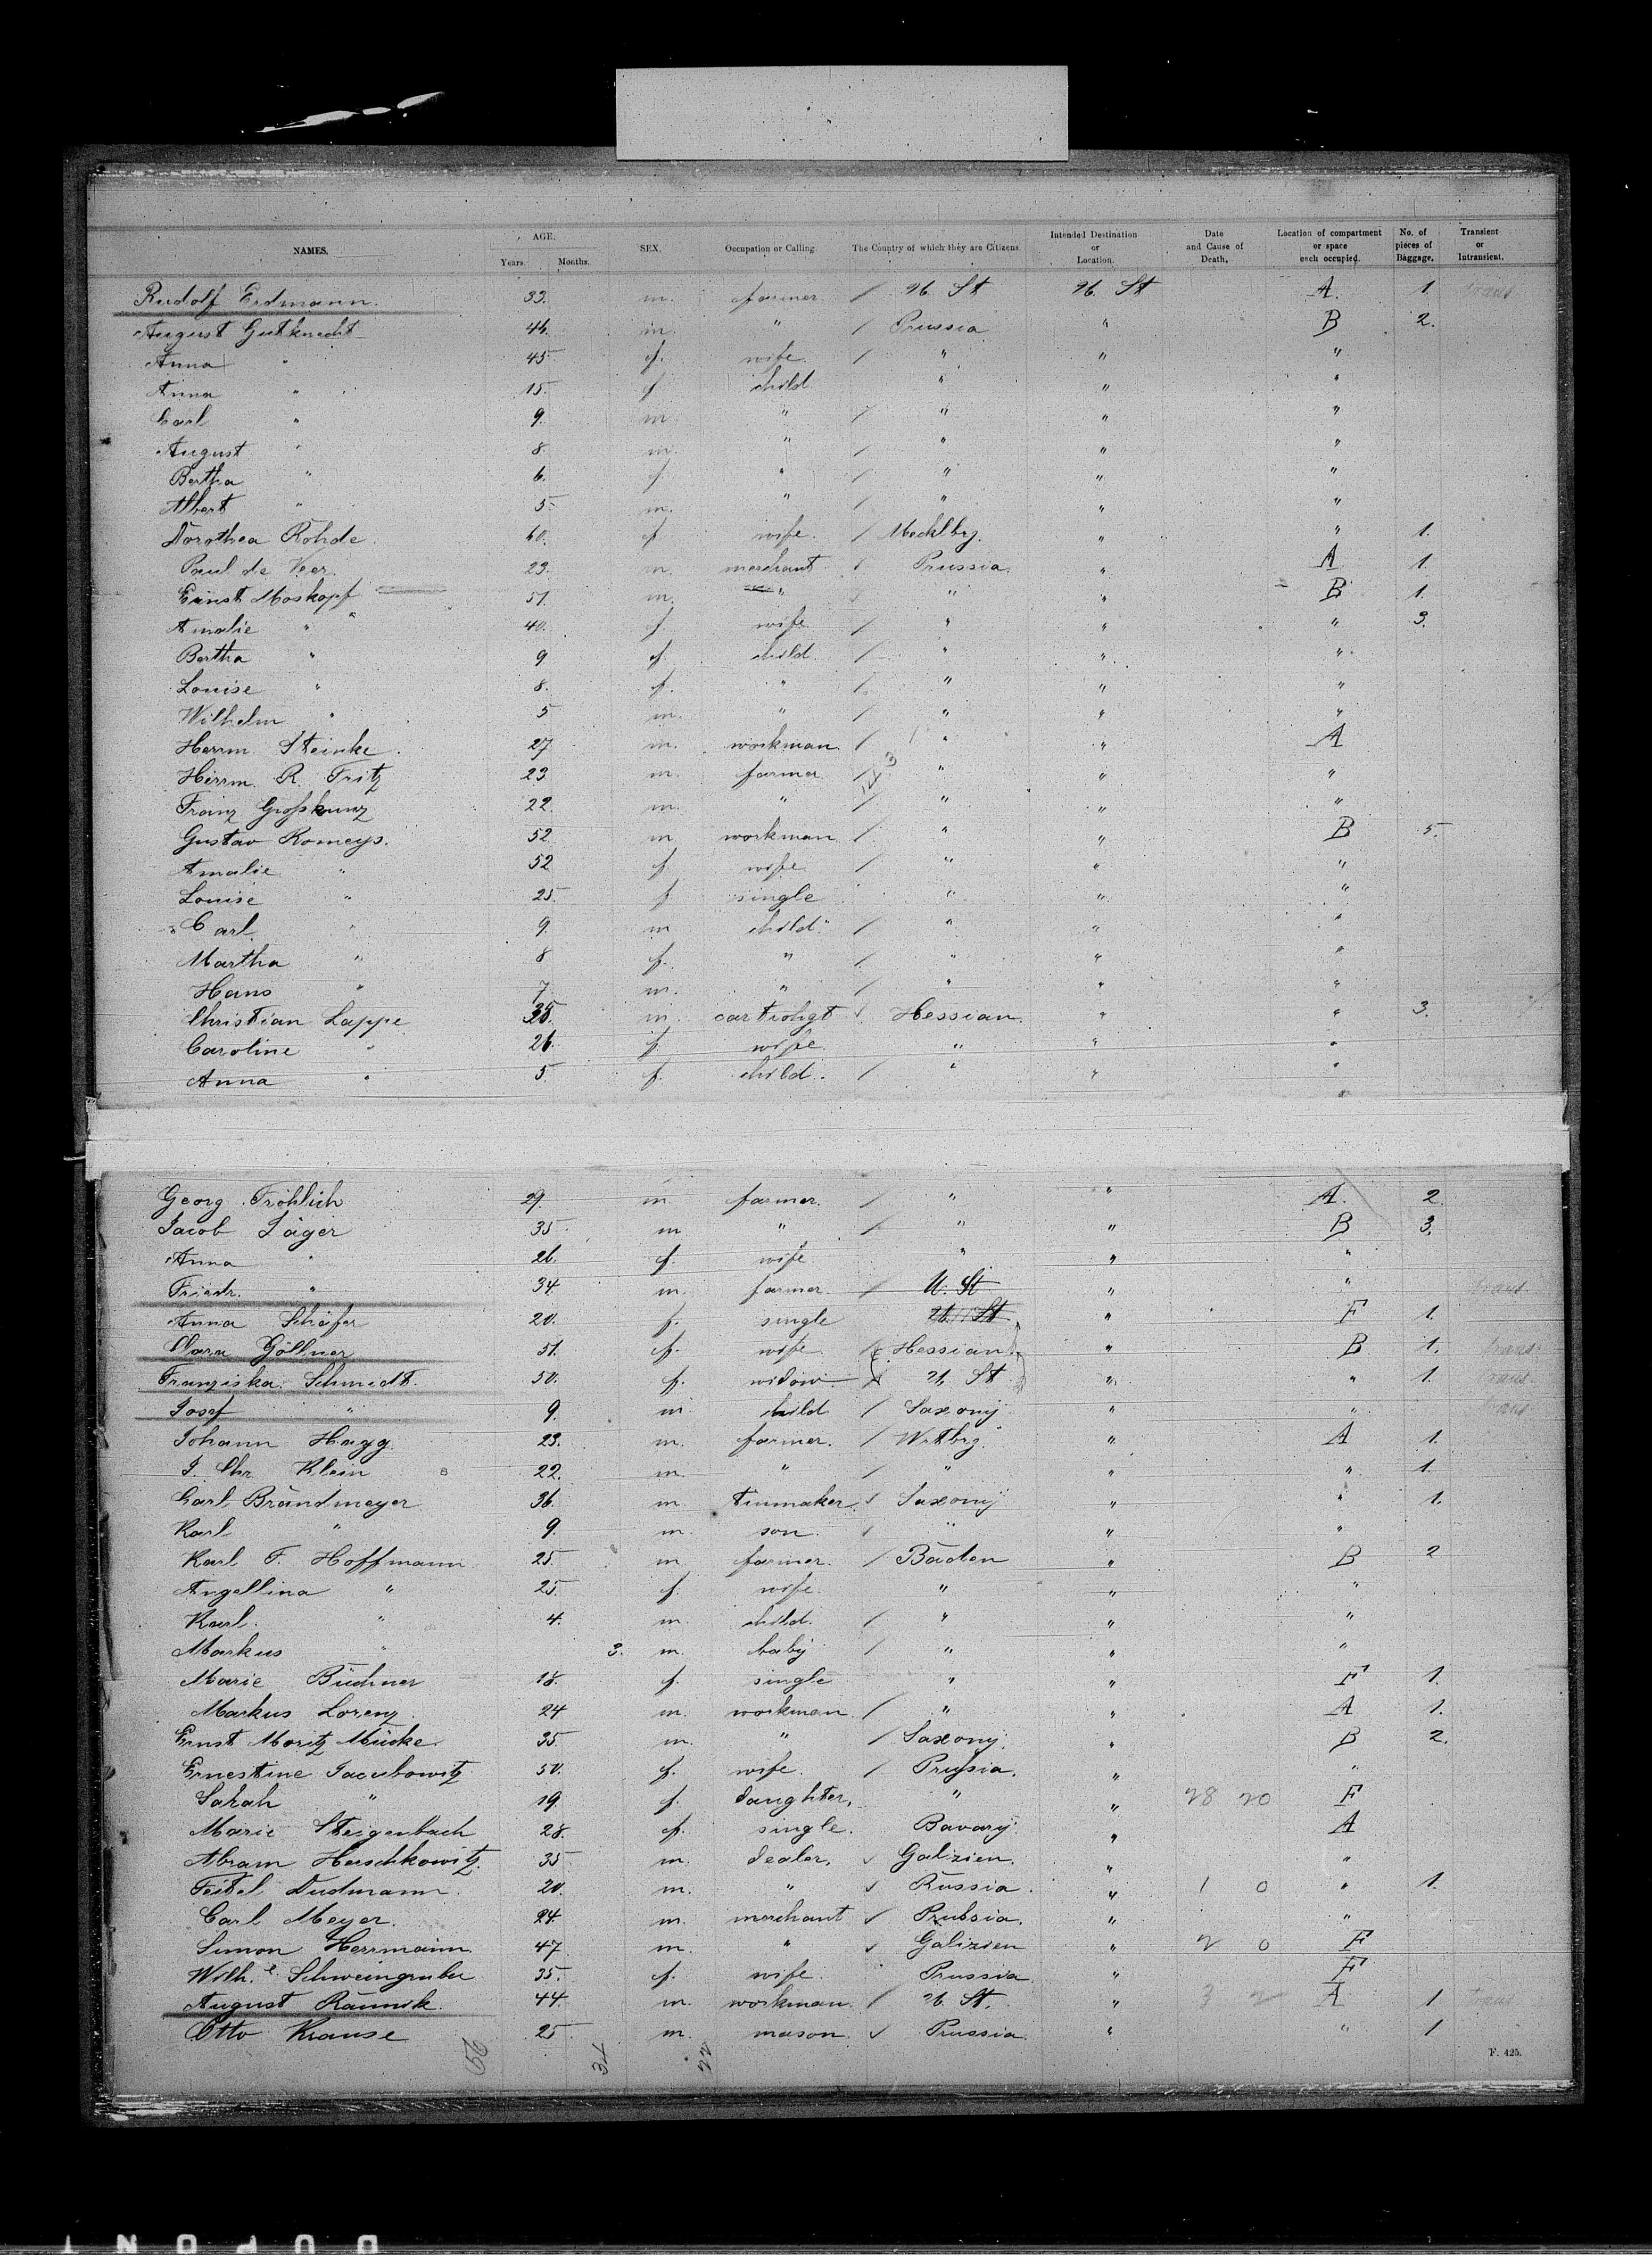 NAMES. AGE. Years. Months. SEX. Occupation or Calling. The Country of which they are Citizens. Intended Destination or Location. Date and Cause of Death. Location of compartment or space each occupied. No. of pieces of Baggage. Transient or Intransient.
Rudolf Erdmann. 33. m. farmer / U. St U. St A. 1. trans
August Gutknecht 46. m. " / Prussia " B 2.
Anna " 45 f. wife. / " " "
Anna " 15. f child " " "
Carl " 9. m " / " " "
August " 8. m. " / " " "
Bertha " 6. f " / " " "
Albert " 5 m. " / " " "
Dorothea Rohde. 60. f wife. / Mecklbg. " " 1.
Paul de Veer. 23. m. merchant Prussia. " A 1.
Ernst Moskopf 51. m. " " " B 1.
Amalie " 40. f wife / " " " 3.
Bertha " 9 f. child. / " " "
Louise " 8. f. " / " " "
Wilhelm " 5 m. " / " " "
Herrm. Steinke. 27 m. workman / " " A
Herrm. R. Fritz 23 m. farmer / " " "
Franz Großkunz 22. m. " / " " "
Gustav Romeys. 52 m workman / " " B 5.
Amalie " 52 f. wife / " " "
Louise " 25. f single " " "
Carl " 9. m child / " " "
Martha " 8 f. " / " " "
Hans " 7 m. " / " " "
Christian Lappe m. Hessian. " " 3.
Caroline " 26. f. wife " " "
Anna " 5 f. child. / " " "
Georg Fröhlich 29. m farmer. / " " A. 2.
Jacob Jäger 35. m " / " " B 3.
Anna " 26. f. wife " " "
Friedr. " 34. m. farmer. / U. St " " trans.
Anna Schäfer 20. f. single U. St " F 1.
Clara Göllner 51. f. wife / Hessian " B 1. trans
Franziska Schmidt. 50. f. widow U. St " " 1. trans
Josef " 9. m child / Saxony " " trans
Johann Hagg 23. m. farmer. / Wrtbrg. " A 1.
J. Chr Klein 22. m. " / " " " 1.
Carl Brandmeyer 36. m. tinmaker Saxony " " 1.
Karl " 9. m. son. / " " "
Karl F. Hoffmann 25. m farmer. / Baden " B 2
Angellina " 25. f. wife. " " "
Karl. " 4. m. child. / " " "
Markus " 3. m. baby / " " "
Marie Büchner 18. f. single " " F 1.
Markus Lorenz. 24 m. workman / " " A 1.
Ernst Moritz Mücke. 35. m. " / Saxony. " B 2.
Ernestine Jacubowitz 50. f. wife. / Prussia. " "
Sarah " 19. f. daughter, " " 28 20 F
Marie Steigenbach 28. f. single. Bavary. " A
Abram Herschkowitz. 35 m. dealer, Galizien. " "
Feitel Dudmann. 20. m. " Russia. " 1 0 " 1.
Carl Meyer. 24. m. merchant Prussia. " "
Simon Herrmann 47 m. " Galizien " 2 0 F
Wilh.e Schweingruber 35. f. wife. Prussia " F
August Rännik. 44. m. workman. / U. St. " 3 2 A 1 trans
Otto Krause 25 m. mason. Prussia. " " 1
29
F. 425.